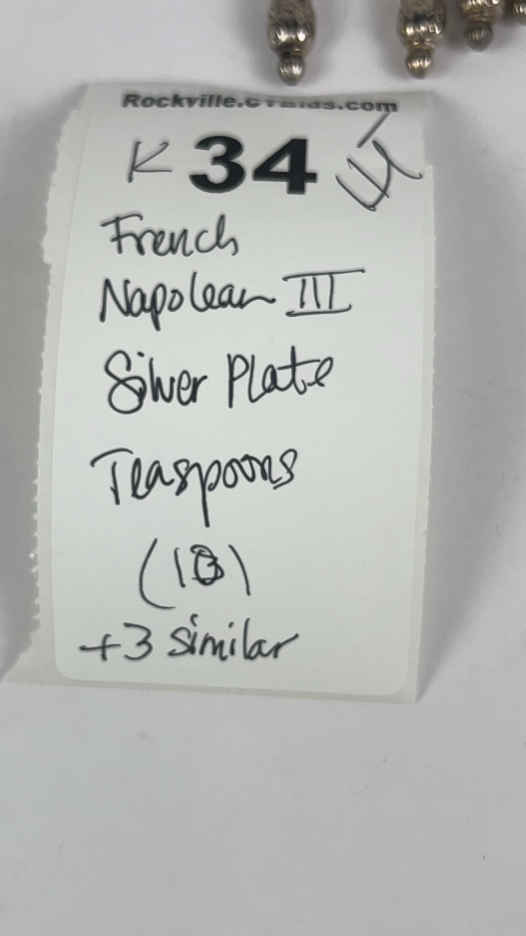 Rockville.
K 34
French
Napolean III
Silver Plate
Teaspoons
+3 similar